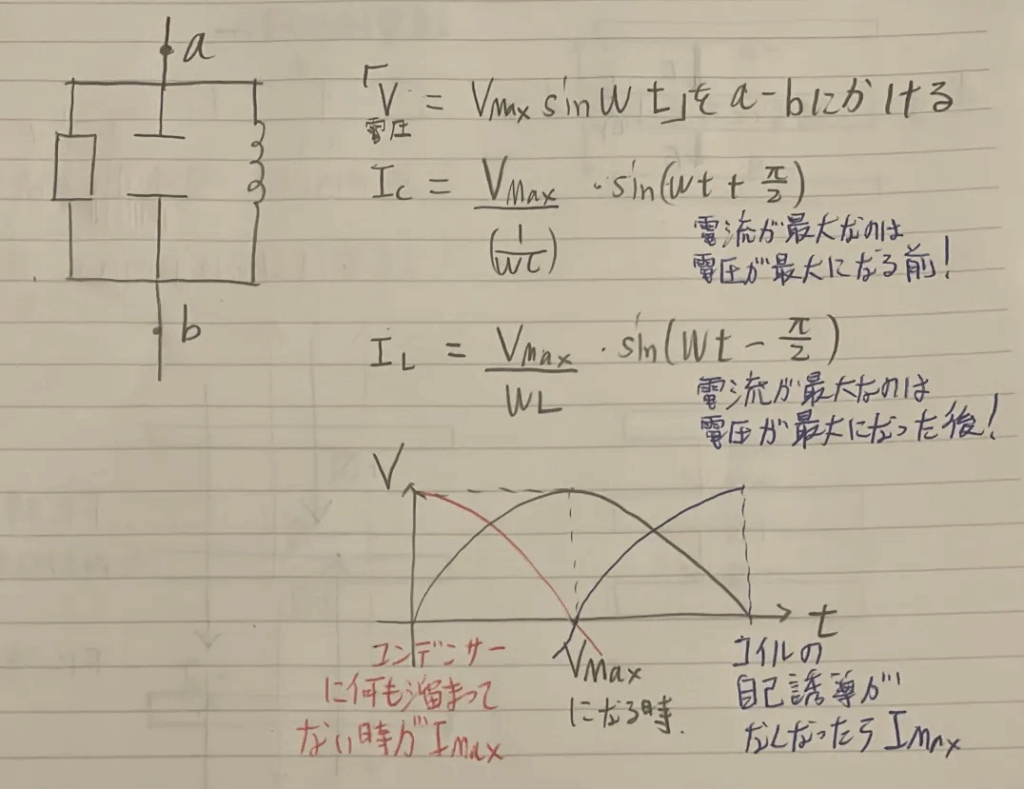 a
b
「V = Vmax sin wt」をa-bにかける
電圧
Ic = VMax/(1/wc) · sin(wt + π/2)
電流が最大なのは
電圧が最大になる前!
IL = VMax/wL · sin(wt - π/2)
電流が最大なのは
電圧が最大になった後!
V
t
コンデンサー
に何も溜まって
ない時がIMax
VMax
になる時.
コイルの
自己誘導が
なくなったらIMax